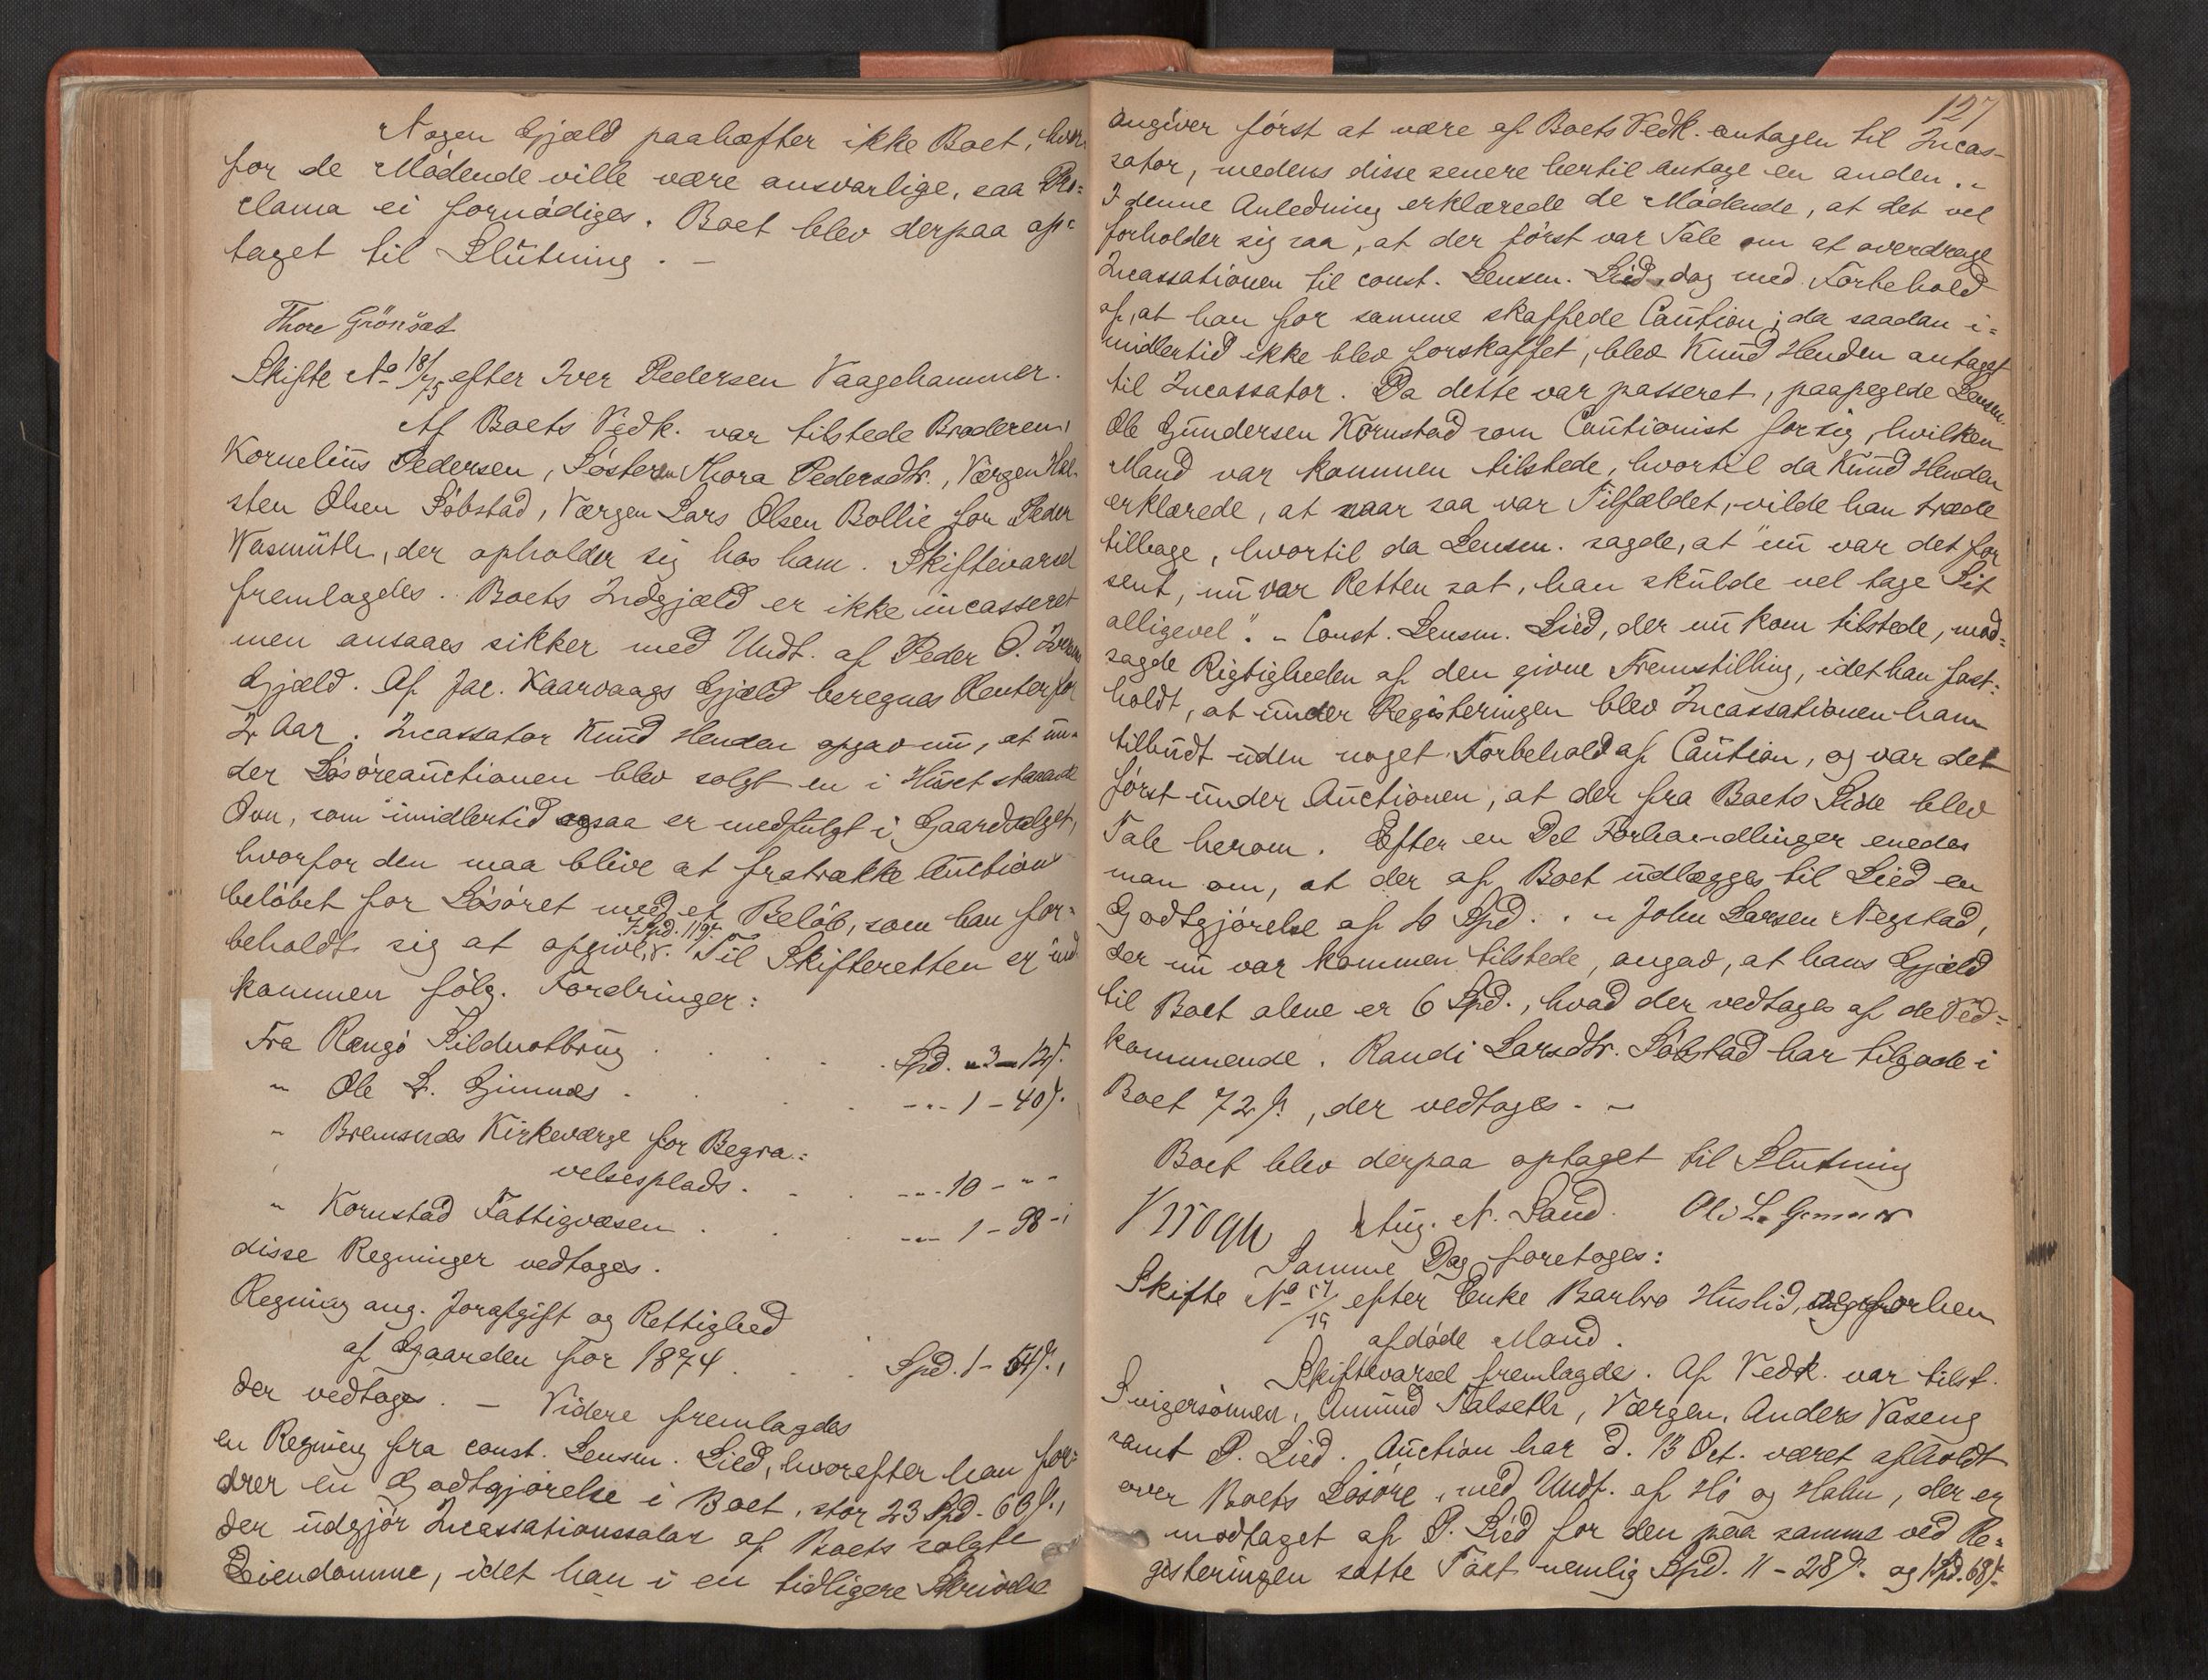 Nogen Gjæld paahæfter ikke Boet, hvor-
for de Mødende ville være ansvarlige, saa Pro=
clama ei fornødiges. Boet blev derpaa op=
taget til Slutning. –
Thore Grönset
Skifte No 18/75 efter Iver Pedersen Vaagehammer.
Af Boets Vedk. var tilstede Broderen,
Kornelius Pedersen, Søsteren Thora Pedersdtr., Værgen Hal-
sten Olsen Søbstad, Værgen Lars Olsen Bollie for Peder
Wasmuth, der opholder sig hos ham. Skiftevarsel
fremlagdes. Boets Indgjæld er ikke incasseret
men ansaaes sikker med Undt. af Peder O.
Gjæld. Af Jac. Kaarvaags Gjæld beregnes Renter for
2 Aar. Incassator Knud Henden opgav nu, at un-
der Løsøreauctionen blev solgt en i Huset staaende
Ovn, som imidlertid ogsaa er medfulgt i Gaardsalget,
hvorfor den maa blive at fratrække Auctions
beløbet for Løsøret med et Beløb, som han for=
7 Spd. 11 s.
beholdt sig at opgive. Til Skifteretten er ind
kommen følg. Fordringer:
Fra Rangö Sildnotbrug . . . Spd. " 3 – 12 s.
" Ole L. Gimnæs . . . " 1 – 40 s.
" Bremsnæs Kirkeværge for Begra=
velsesplads . . . " 10 – " –
" Kornstad Fattigvæsen . . . " 1 – 98 –
disse Regninger vedtoges.
Regning ang. Jorafgift og Rettighed
af Gaarden for 1874 . . . Spd. 1 – 54 s.,
der vedtoges. – Videre fremlagdes
en Regning fra const. Lensm. Lied, hvorefter han for=
drer en Godtgjørelse i Boet, stor 23 Spd. 63 s.,
der udgjør Incassationssalar af Boets solgte
Eiendomme, idet han i en tidligere Skrivelse
127
angiver først at være af Boets Vedk. antagen til Incas-
sator, medens disse senere hertil antage en anden. –
I denne Anledning erklærede de Mødende, at det vel
forholder sig saa, at der først var Tale om at overdrage
Incassationen til const. Lensm. Lied, dog med Forbehold
af, at han for samme skaffede Caution; da saadan i=
midlertid ikke blev forskaffet, blev Knud Henden antaget
til Incassator. Da dette var passeret, paapegede Lensm.
Ole Gundersen Kornstad som Cautionist for sig, hvilken
Mand var kommen tilstede, hvortil da Knud Henden
erklærede, at naar saa var Tilfældet, vilde han træde
tilbage, hvortil da Lensm. sagde, at "nu var det for
sent, nu var Retten sat, han skulde vel tage Sit
alligevel". – Const. Lensm. Lied, der nu kom tilstede, mod=
sagde Rigtigheden af den givne Fremstilling, idet han fast=
holdt, at under Registeringen blev Incassationen ham
tilbudt uden noget Forbehold af Caution, og var det
først under Auctionen, at der fra Boets Side blev
Tale herom. Efter en Del Forhandlinger enedes
man om, at der af Boet udlægges til Lied en
Godtgjørelse af 10 Spd. . – John Larsen Negstad,
der nu var kommen tilstede, angav, at hans Gjæld
til Boet alene er 6 Spd., hvad der vedtages af de Ved=
kommende. Randi Larsdtr. Søbstad har tilgode i
Boet 72 s., der vedtages. –
Boet blev derpaa optaget til Slutning
Krogh Aug. N. Sand. Ole L. Gimnæs
Samme Dag foretoges:
Skifte No 57/75 efter Enke Barbro Huslid, og forhen
afdøde Mand.
Skiftevarsel fremlagdes. Af Vedk. var tilst.
Svigersønnen, Amund Talseth, Værgen, Anders Vaseng
samt P. Lied. Auction har d. 13 Oct. været afholdt
over Boets Løsøre, med Undt. af Hø og Halm, der er
modtaget af P. Lied for den paa samme ved Re=
gisteringen satte Taxt nemlig Spd. 11 – 28 s. og 1 Spd. 68 s.